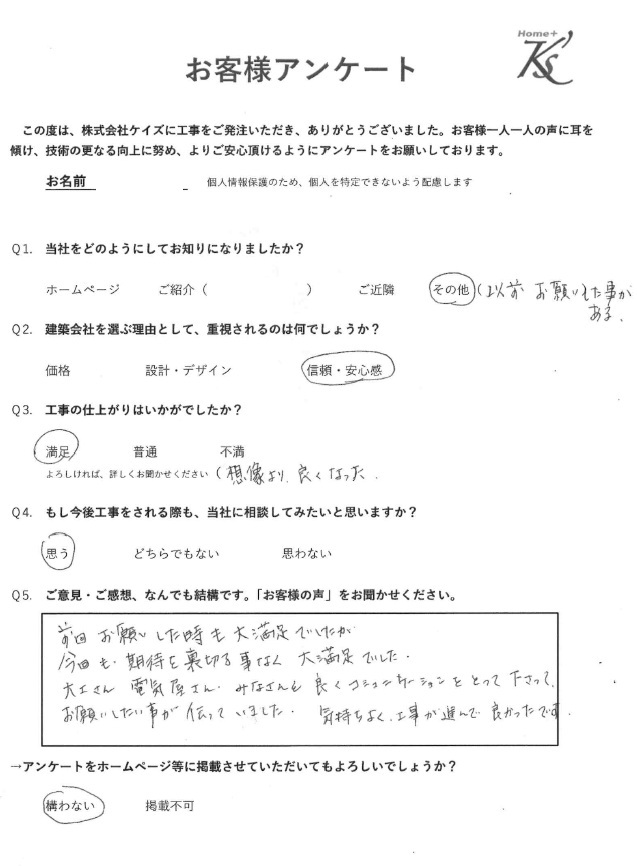 Home+
K's
お客様アンケート
この度は、株式会社ケイズに工事をご発注いただき、ありがとうございました。お客様一人一人の声に耳を
傾け、技術の更なる向上に努め、よりご安心頂けるようにアンケートをお願いしております。
お名前 個人情報保護のため、個人を特定できないよう配慮します
Q1. 当社をどのようにしてお知りになりましたか？
ホームページ ご紹介（ ） ご近隣 その他 (以前 お願いした事が
ある.
Q2. 建築会社を選ぶ理由として、重視されるのは何でしょうか？
価格 設計・デザイン 信頼・安心感
Q3. 工事の仕上がりはいかがでしたか？
満足 普通 不満
よろしければ、詳しくお聞かせください（ 想像より、良くなった.
Q4. もし今後工事をされる際も、当社に相談してみたいと思いますか？
思う どちらでもない 思わない
Q5. ご意見・ご感想、なんでも結構です。「お客様の声」をお聞かせください。
前回 お願いした時も 大満足でしたが
今回も 期待を裏切る事なく 大満足でした.
大工さん 電気屋さん みなさんも 良くコミュニケーションをとって下さって、
お願いしたい事が 伝っていました. 気持ちよく、工事が進んで 良かったです.
→アンケートをホームページ等に掲載させていただいてもよろしいでしょうか？
構わない 掲載不可